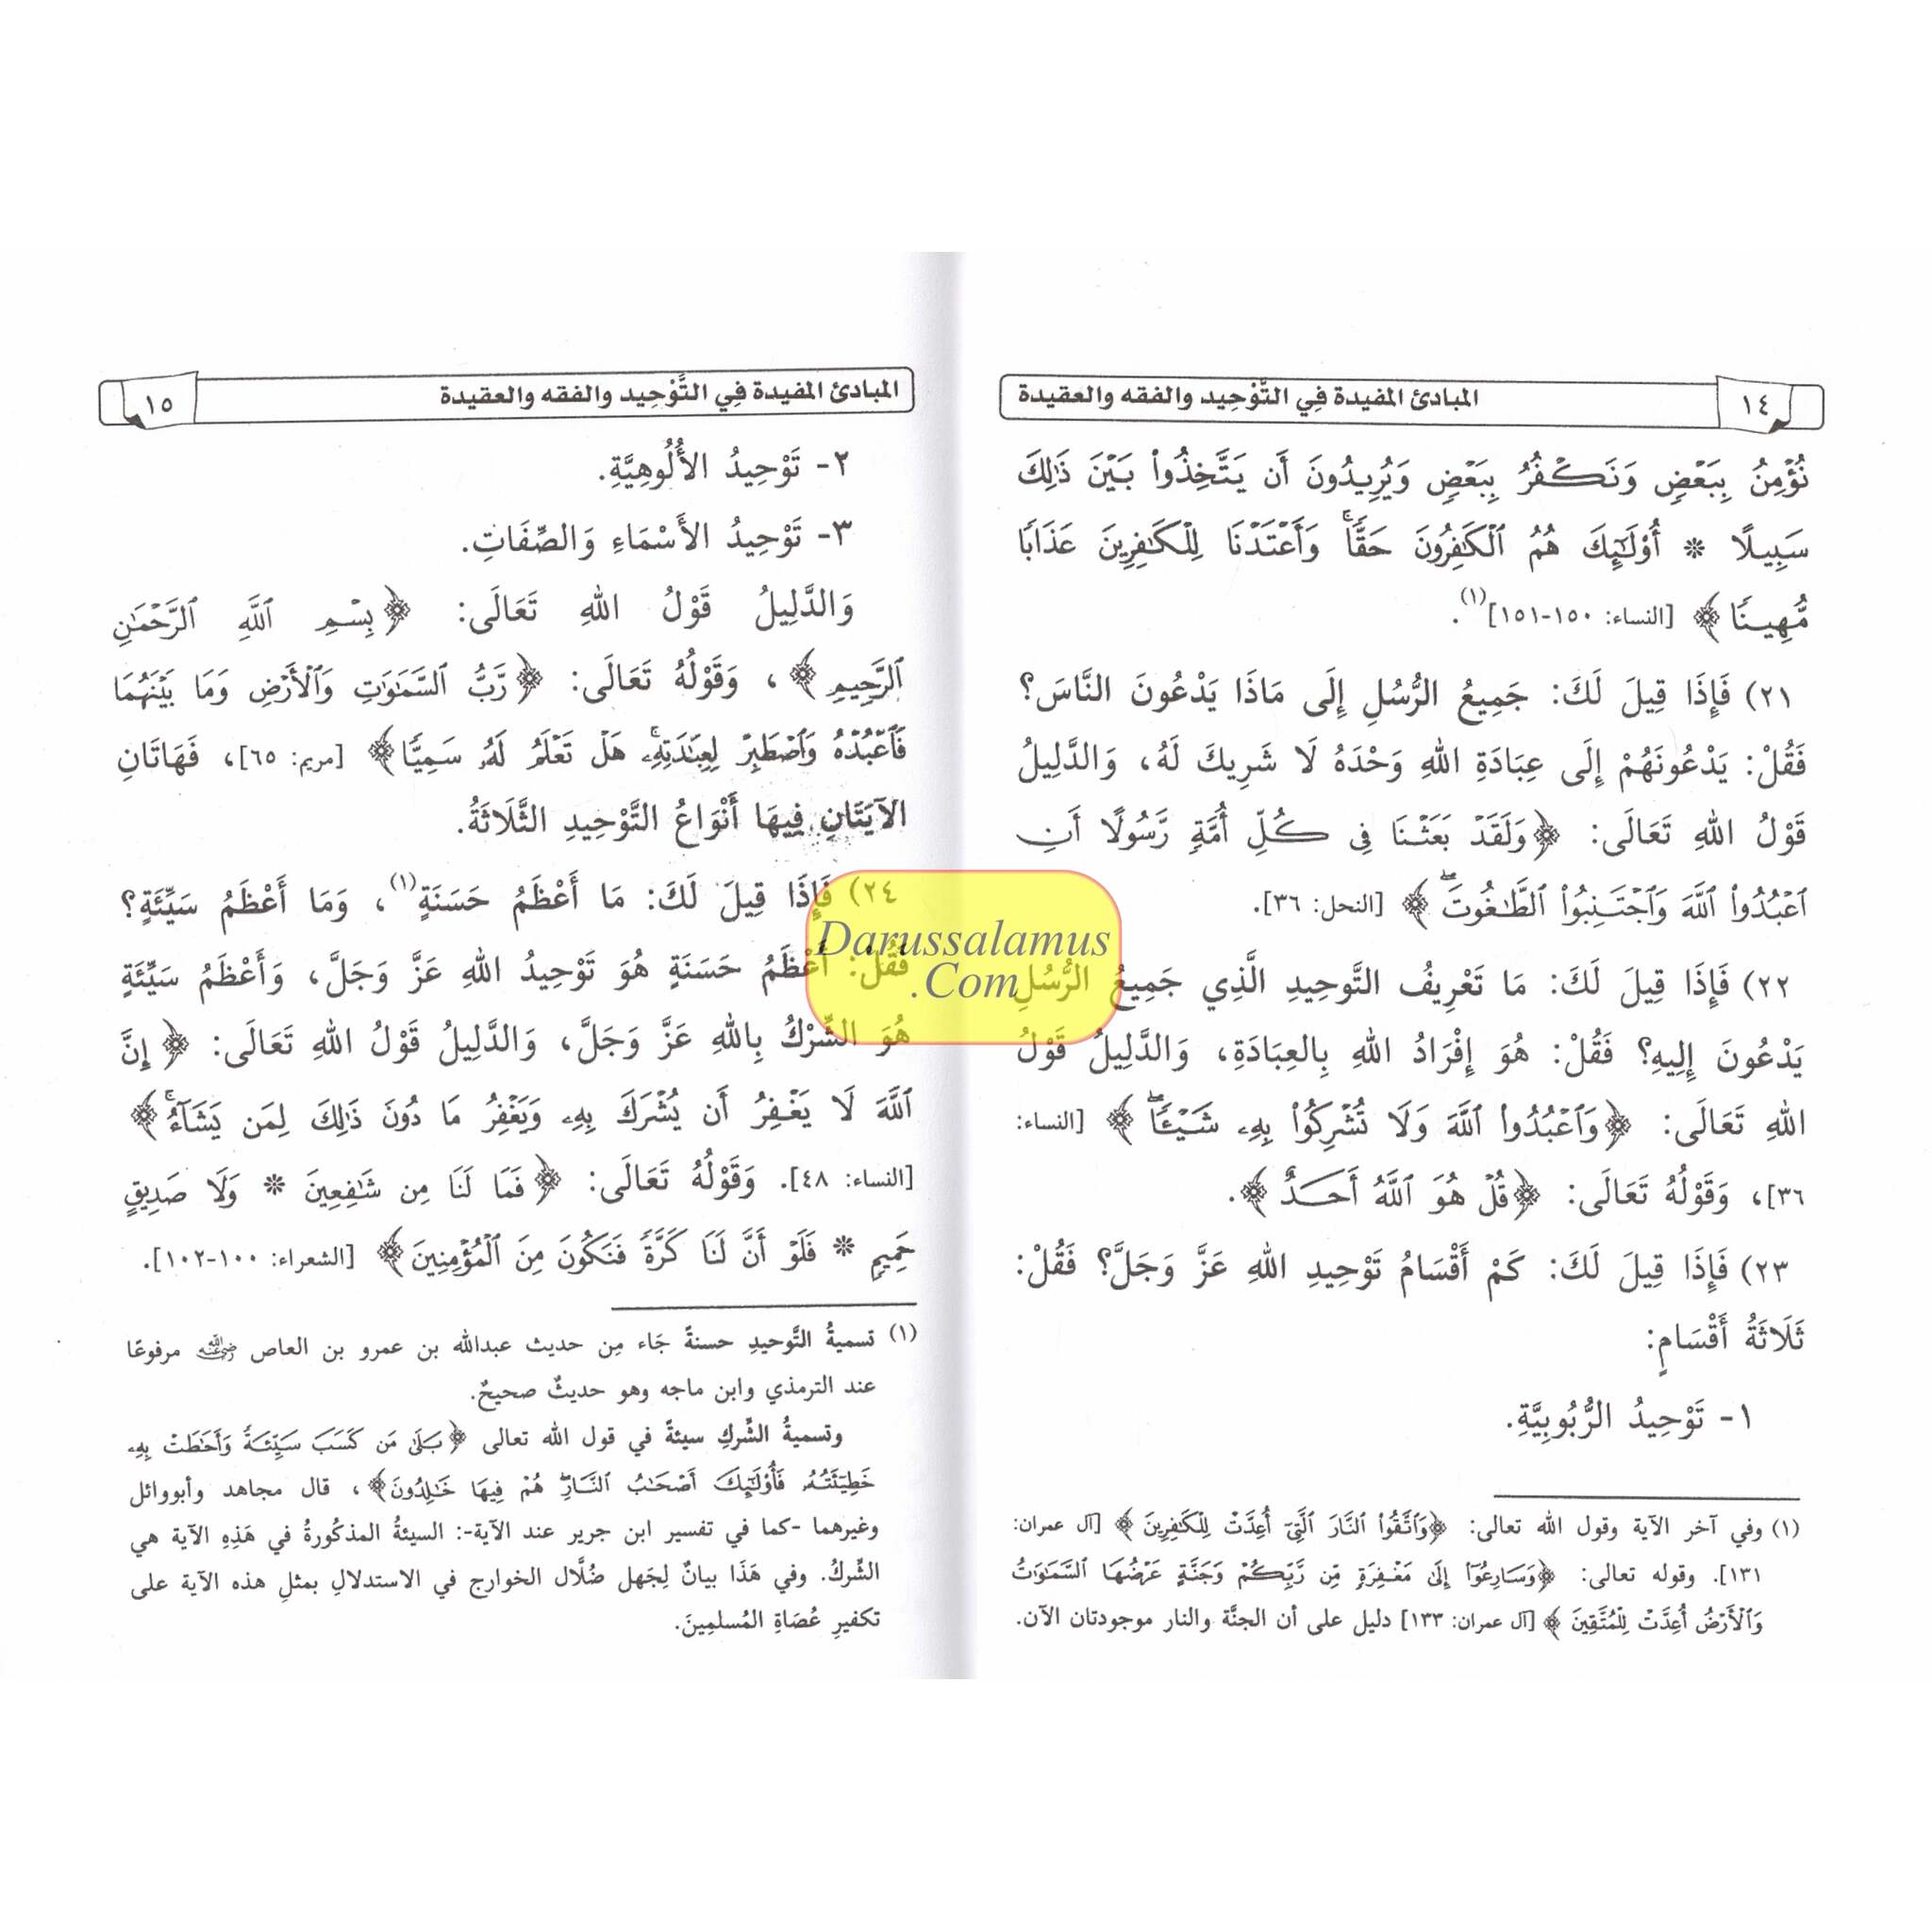 ١٤
المبادئ المفيدة فِي التَّوْحِيد والفقه والعقيدة
نُؤْمِنُ بِبَعْضٍ وَنَكْفُرُ بِبَعْضٍ وَيُرِيدُونَ أَن يَتَّخِذُوا۟ بَيْنَ ذَٰلِكَ
سَبِيلًا * أُو۟لَٰٓئِكَ هُمُ ٱلْكَٰفِرُونَ حَقًّا ۚ وَأَعْتَدْنَا لِلْكَٰفِرِينَ عَذَابًا
مُّهِينًا ﴾ [النساء: ١٥٠-١٥١](١).
٢١) فَإِذَا قِيلَ لَكَ: جَمِيعُ الرُّسُلِ إِلَى مَاذَا يَدْعُونَ النَّاسَ؟
فَقُلْ: يَدْعُونَهُمْ إِلَى عِبَادَةِ اللهِ وَحْدَهُ لَا شَرِيكَ لَهُ، وَالدَّلِيلُ
قَوْلُ اللهِ تَعَالَى: ﴿وَلَقَدْ بَعَثْنَا فِى كُلِّ أُمَّةٍ رَّسُولًا أَنِ
ٱعْبُدُوا۟ ٱللَّهَ وَٱجْتَنِبُوا۟ ٱلطَّٰغُوتَ ۖ ﴾ [النحل: ٣٦].
٢٢) فَإِذَا قِيلَ لَكَ: مَا تَعْرِيفُ التَّوحِيدِ الَّذِي جَمِيعُ الرُّسُلِ
يَدْعُونَ إِلِيهِ؟ فَقُلْ: هُوَ إِفْرَادُ اللهِ بِالعِبَادَةِ، وَالدَّلِيلُ قَوْلُ
اللهِ تَعَالَى: ﴿وَٱعْبُدُوا۟ ٱللَّهَ وَلَا تُشْرِكُوا۟ بِهِۦ شَيْـًٔا ۖ ﴾ [النساء:
٣٦]، وَقَوْلُهُ تَعَالَى: ﴿قُلْ هُوَ ٱللَّهُ أَحَدٌ ﴾.
٢٣) فَإِذَا قِيلَ لَكَ: كَمْ أَقْسَامُ تَوْحِيدِ اللهِ عَزَّ وَجَلَّ؟ فَقُلْ:
ثَلَاثَةُ أَقْسَامٍ:
١- تَوْحِيدُ الرُّبُوبِيَّةِ.
(١) وفي آخر الآية وقول الله تعالى: ﴿وَٱتَّقُوا۟ ٱلنَّارَ ٱلَّتِىٓ أُعِدَّتْ لِلْكَٰفِرِينَ ﴾ [آل عمران:
١٣١]. وقوله تعالى: ﴿وَسَارِعُوٓا۟ إِلَىٰ مَغْفِرَةٍ مِّن رَّبِّكُمْ وَجَنَّةٍ عَرْضُهَا ٱلسَّمَٰوَٰتُ
وَٱلْأَرْضُ أُعِدَّتْ لِلْمُتَّقِينَ ﴾ [آل عمران: ١٣٣] دليل على أن الجنَّة والنار موجودتان الآن.
المبادئ المفيدة فِي التَّوْحِيد والفقه والعقيدة
١٥
٢- تَوْحِيدُ الأُلُوهِيَّةِ.
٣- تَوْحِيدُ الأَسْمَاءِ وَالصِّفَاتِ.
وَالدَّلِيلُ قَوْلُ اللهِ تَعَالَى: ﴿بِسْمِ ٱللَّهِ ٱلرَّحْمَٰنِ
ٱلرَّحِيمِ ﴾، وَقَوْلُهُ تَعَالَى: ﴿رَّبُّ ٱلسَّمَٰوَٰتِ وَٱلْأَرْضِ وَمَا بَيْنَهُمَا
فَٱعْبُدْهُ وَٱصْطَبِرْ لِعِبَٰدَتِهِۦ ۚ هَلْ تَعْلَمُ لَهُۥ سَمِيًّا ﴾ [مريم: ٦٥]، فَهَاتَانِ
الآيَتَانِ فِيهَا أَنْوَاعُ التَّوْحِيدِ الثَّلَاثَةُ.
٢٤) فَإِذَا قِيلَ لَكَ: مَا أَعْظَمُ حَسَنَةٍ(١)، وَمَا أَعْظَمُ سَيِّئَةٍ؟
فَقُلْ: أَعْظَمُ حَسَنَةٍ هُوَ تَوْحِيدُ اللهِ عَزَّ وَجَلَّ، وَأَعْظَمُ سَيِّئَةٍ
هُوَ الشِّرْكُ بِاللهِ عَزَّ وَجَلَّ، وَالدَّلِيلُ قَوْلُ اللهِ تَعَالَى: ﴿ إِنَّ
ٱللَّهَ لَا يَغْفِرُ أَن يُشْرَكَ بِهِۦ وَيَغْفِرُ مَا دُونَ ذَٰلِكَ لِمَن يَشَآءُ ۚ ﴾
[النساء: ٤٨]. وَقَوْلُهُ تَعَالَى: ﴿ فَمَا لَنَا مِن شَٰفِعِينَ * وَلَا صَدِيقٍ
حَمِيمٍ * فَلَوْ أَنَّ لَنَا كَرَّةً فَنَكُونَ مِنَ ٱلْمُؤْمِنِينَ ﴾ [الشعراء: ١٠٠-١٠٢].
(١) تسميةُ التَّوحيدِ حسنةً جَاء مِن حديث عبدالله بن عمرو بن العاص رضي الله عنه مرفوعًا
عند الترمذي وابن ماجه وهو حديثٌ صحيحٌ.
وتسميةُ الشِّركِ سيئةً في قول الله تعالى ﴿بَلَىٰ مَن كَسَبَ سَيِّئَةً وَأَحَٰطَتْ بِهِۦ
خَطِيٓـَٔتُهُۥ فَأُو۟لَٰٓئِكَ أَصْحَٰبُ ٱلنَّارِ ۖ هُمْ فِيهَا خَٰلِدُونَ ﴾، قال مجاهد وأبووائل
وغيرهما -كما في تفسير ابن جرير عند الآية-: السيئةُ المذكُورةُ في هَذِهِ الآية هي
الشِّركُ. وفي هَذَا بيانٌ لِجَهل ضُلَّال الخوارج في الاستدلالِ بمثلِ هذه الآية على
تكفيرِ عُصَاةِ المُسلمِينَ.
Darussalamus
.Com